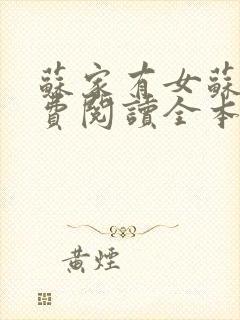 蘇家有女蘇
費閱讀全本
黃煙